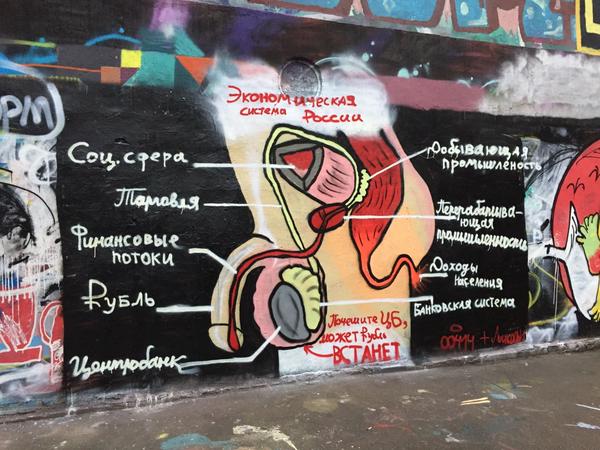 Экономическая
система России
Соц. сфера
Торговля
Финансовые
потоки
Рубль
Центробанк
Добывающая
промышленость
Перерабатыва-
ющая
промышленность
Доходы
населения
Банковская система
Почешите ЦБ,
может рубль
ВСТАНЕТ